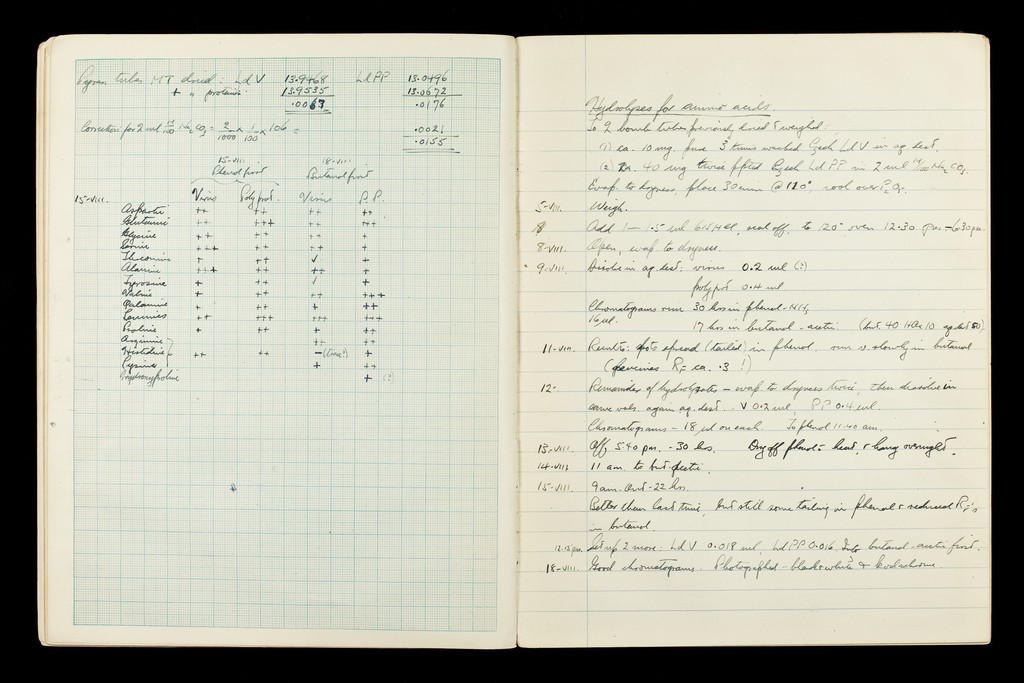 Pyrex tubes MT dried: Ld V 13.9468 Ld PP 13.0496
+ " protein: 13.9535 13.0672
.0067 .0176
Correction for 2 ml M/100 Na2CO3 = 2/1000 x 1/100 x 106 = .0021
.0155
15-VIII 18-VIII
Phenol first Butanol first
15-VIII. Virus Polyprot. Virus P.P.
Aspartic ++ ++ ++ ++
Glutamic ++ +++ ++ +++
Glycine ++ ++ ++ +
Serine +++ ++ ++ +
Threonine + ++ ✓ +
Alanine +++ ++ ++ +
Tyrosine + ++ ✓ +
Valine + ++ ++ +++
+ ++ + ++
Leucines ++ +++ +++ +++
Proline + ++ + ++
Arginine ++ ++
Histidine ++ ++ – (trace?) +
Lysine + +
Hydroxyproline + (?)
Hydrolyses for amino acids.
To 2 bomb tubes previously dried & weighed:
(1) ca. 10 mg. pure 3 times washed Czech Ld V in aq. dest.
(2) ca. 40 mg twice ppted Czech Ld PP in 2 ml M/100 Na2CO3.
Evap. to dryness, place 30 min @ 110°, cool over P2O5.
5-VIII. Weigh.
Add 1–1.5 ml 6N HCl, seal off, to 120° over 12.30 pm – 6.30 pm.
8-VIII. Open, evap. to dryness.
9-VIII. Dissolve in aq. dest: virus 0.2 ml (?)
polyprot 0.4 ml.
Chromatograms run 30 hrs in phenol-NH3
16 µl. 17 hrs in butanol-acetic (but. 40 HAc 10 aq. dest 50).
11-VIII Results: spots spread (tailed) in phenol, run v. slowly in butanol
(leucines RF ca. .3 !)
12- Remainder of hydrolyzates – evap to dryness twice, then dissolve in
same vols. again aq. dest. V 0.2 ml, PP 0.4 ml.
Chromatograms – 18 µl on each. To phenol 11.40 am.
13-VIII. Off, 5.40 pm. - 30 hrs. Dry off phenol – heat, & hang overnight.
14-VIII 11 am. to but-acetic.
15-VIII. 9 am. Out - 22 hrs.
Better than last time, but still some tailing in phenol & reduced RF's
in butanol.
12.15 pm. Set up 2 more: Ld V 0.018 ml, Ld PP 0.016. Into butanol-acetic first.
18-VIII. Good chromatograms. Photographed – black & white & kodachrome.